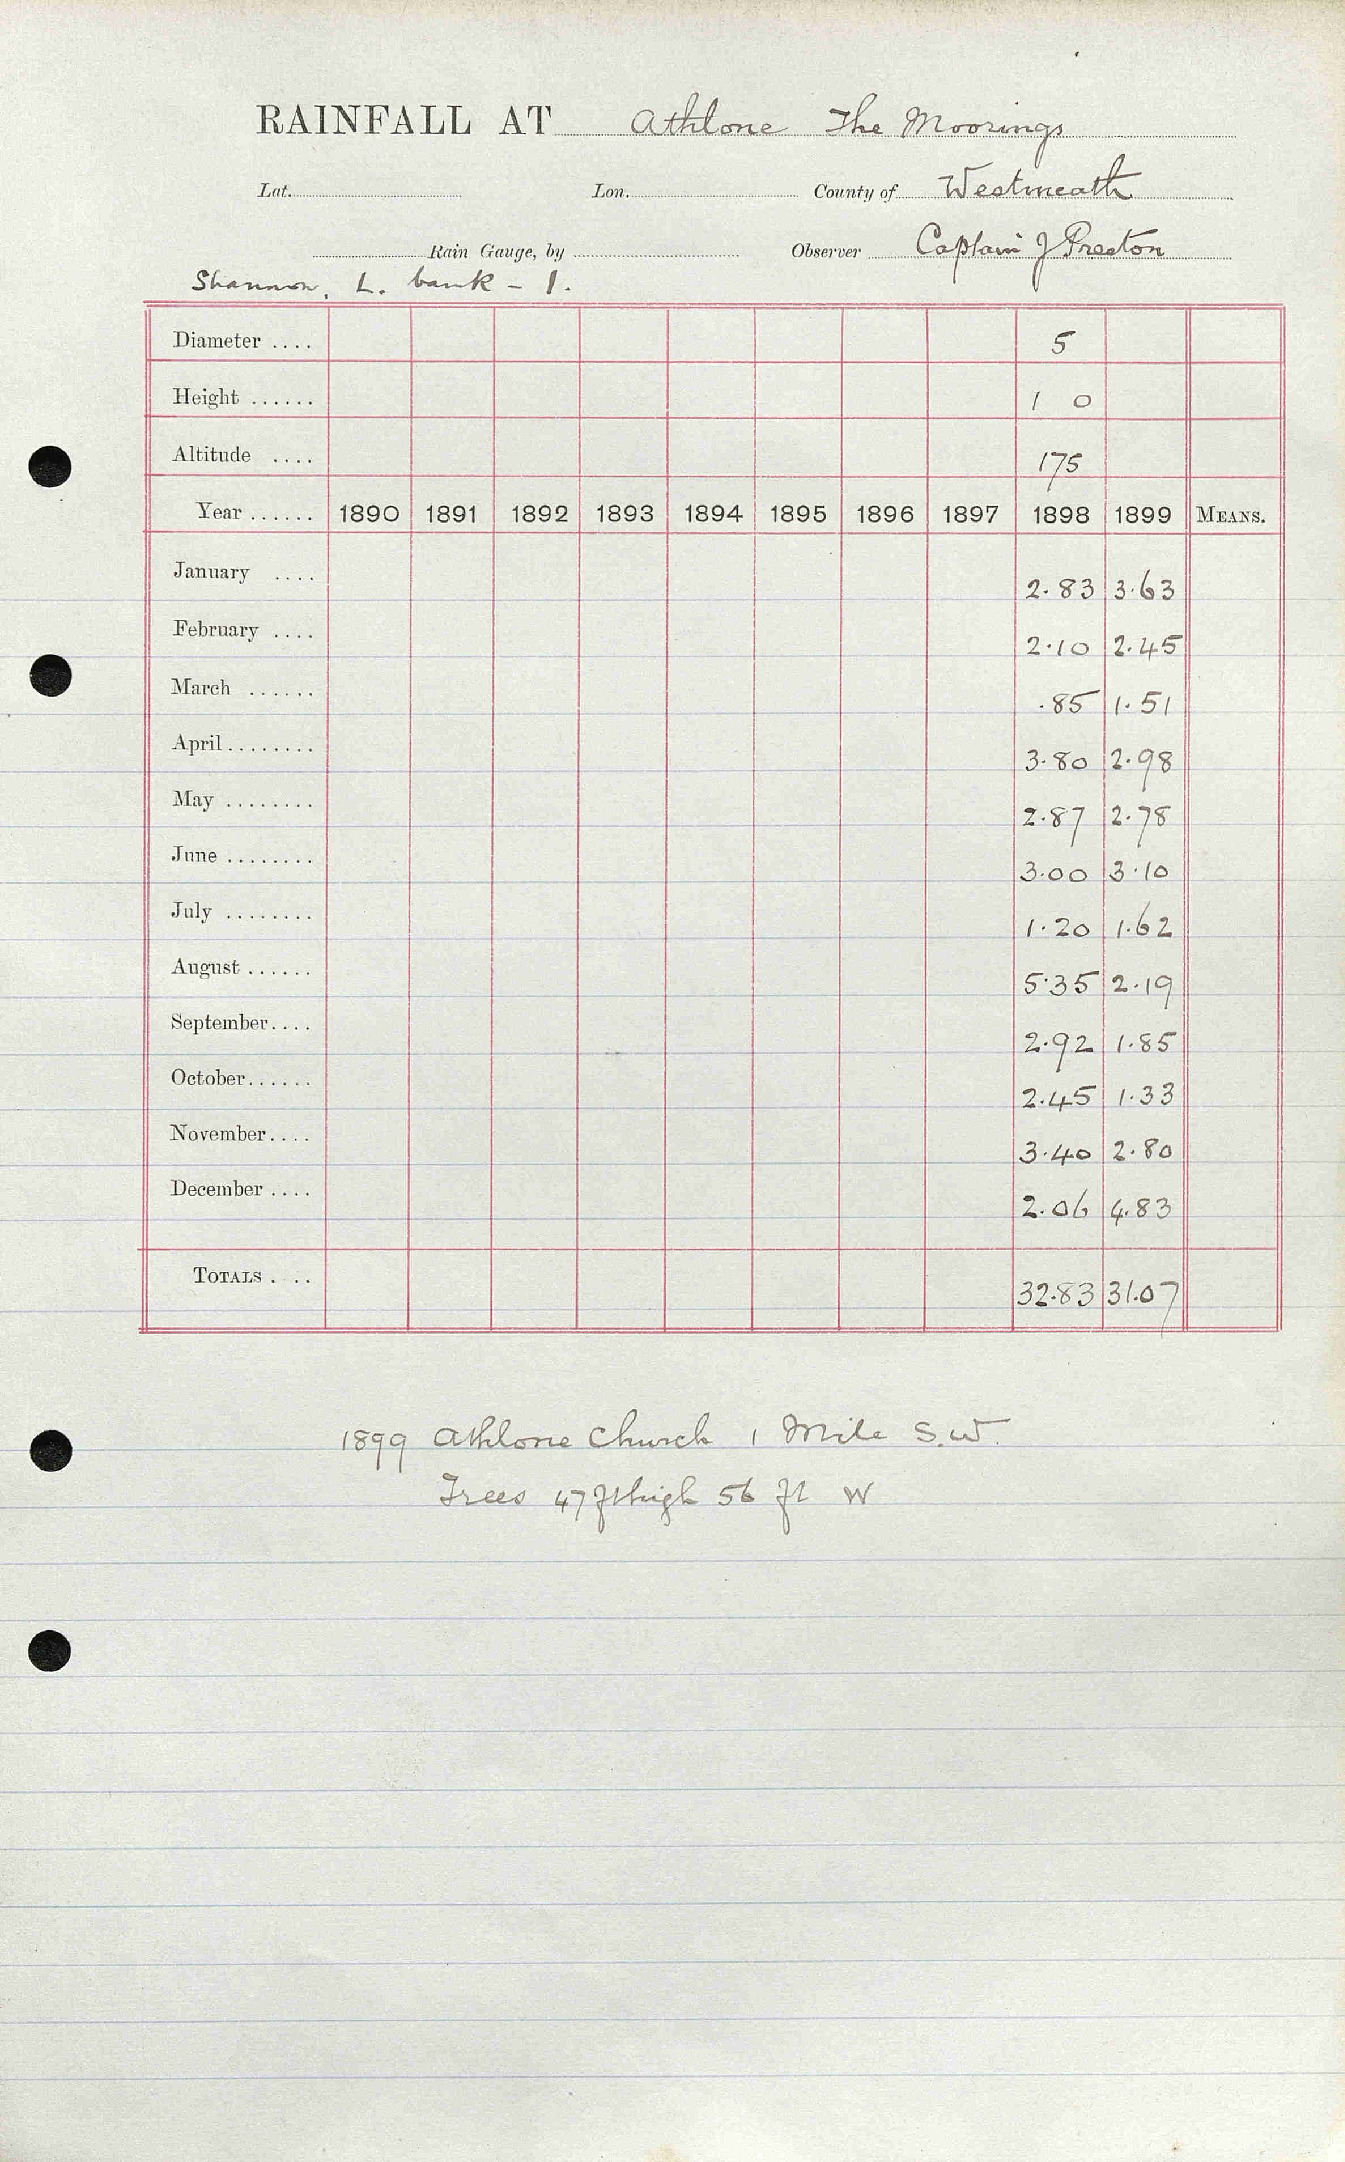 RAINFALL AT Athlone The Moorings
Lat. Lon. County of Westmeath
Rain Gauge, by Observer Captain J Preston
Shannon, L. bank – 1.
Diameter .... 5
Height ...... 1 0
Altitude .... 175
Year ...... 1890 1891 1892 1893 1894 1895 1896 1897 1898 1899 MEANS.
January .... 2.83 3.63
February .... 2.10 2.45
March ...... .85 1.51
April ........ 3.80 2.98
May ........ 2.87 2.78
June ........ 3.00 3.10
July ........ 1.20 1.62
August ...... 5.35 2.19
September.... 2.92 1.85
October...... 2.45 1.33
November.... 3.40 2.80
December .... 2.06 4.83
TOTALS . .. 32.83 31.07
1899 Athlone Church 1 Mile S.W.
Trees 47 ft high 56 ft W